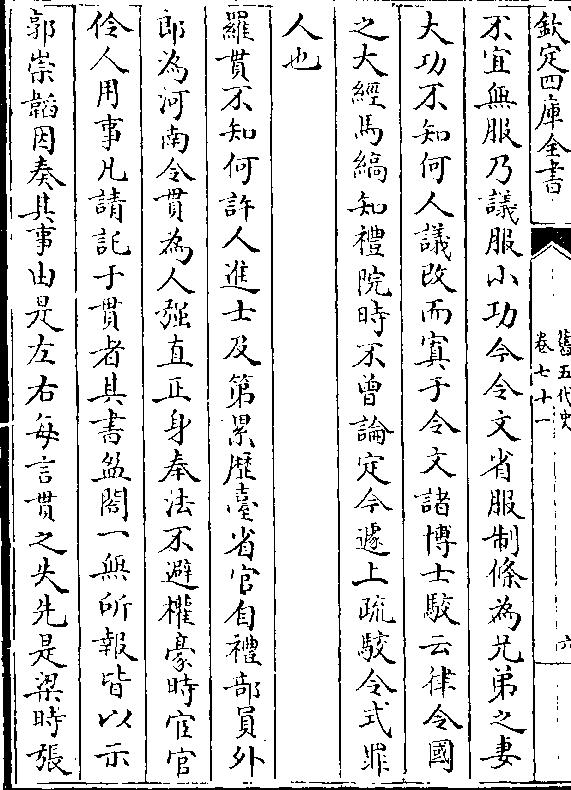 欽定四庫全書
舊五代史
卷七十一
六
不宜無服乃議服小功今令文省服制條為兄弟之妻
大功不知何人議改而寘于令文諸博士駮云律令國
之大經馬縞知禮院時不曾論定今遽上疏駮令式罪
人也
羅貫不知何許人進士及第累歷臺省官自禮部員外
郎為河南令貫為人强直正身奉法不避權豪時宦官
伶人用事凡請託于貫者其書盈閣一無所報皆以示
郭崇韜因奏其事由是左右每言貫之失先是梁時張